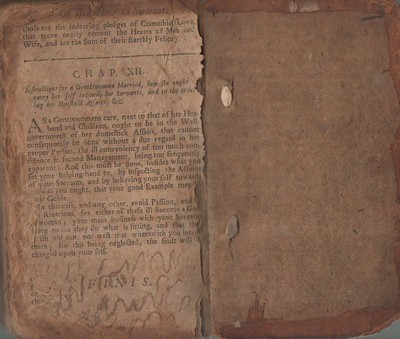 those are the indearing pledges of Connubial Love,
that more nearly cement the Hearts of Man and
Wife, and are the Sum of their Earthly Felicity.
CHAP. XII.
Instructions for a Gentlewoman Married, how she ought
carry her self towards her Servants, and in the order-
ing her Houshold Affairs, &c.
AS a Gentlewomans care, next to that of her Hus-
band and Children, ought to be in the Well-
government of her domestick Affairs, that cannot
consequently be done without a due regard in her
proper Person, the ill conveniency of too much con-
fidence in second Management, being too frequently
apparent: And this must be done, besides what you
set your helping-hand to, by inspecting the Actions
of your Servants, and by behaving your self towards
as you ought, that your good Example may
Noble.
In this case, and any other, avoid Passion, and
Rigorous, for either of these ill become a Gen-
your main business with your Servants
being to see they do what is fitting, and that they
not our, nor wast that wherewith you intrust
them; for this being neglected, the fault will be
charged upon your self.
FINIS.